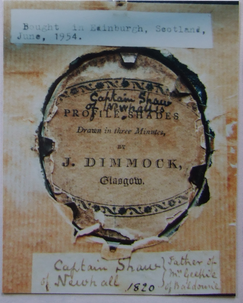 Bought in Edinburgh, Scotland,
June, 1954.
Captain Shaw
of Newhall
PROFILE SHADES
Drawn in three Minutes,
BY
J. DIMMOCK,
Glasgow.
Captain Shaw
of Newhall 1820
Father of
Mrs
of